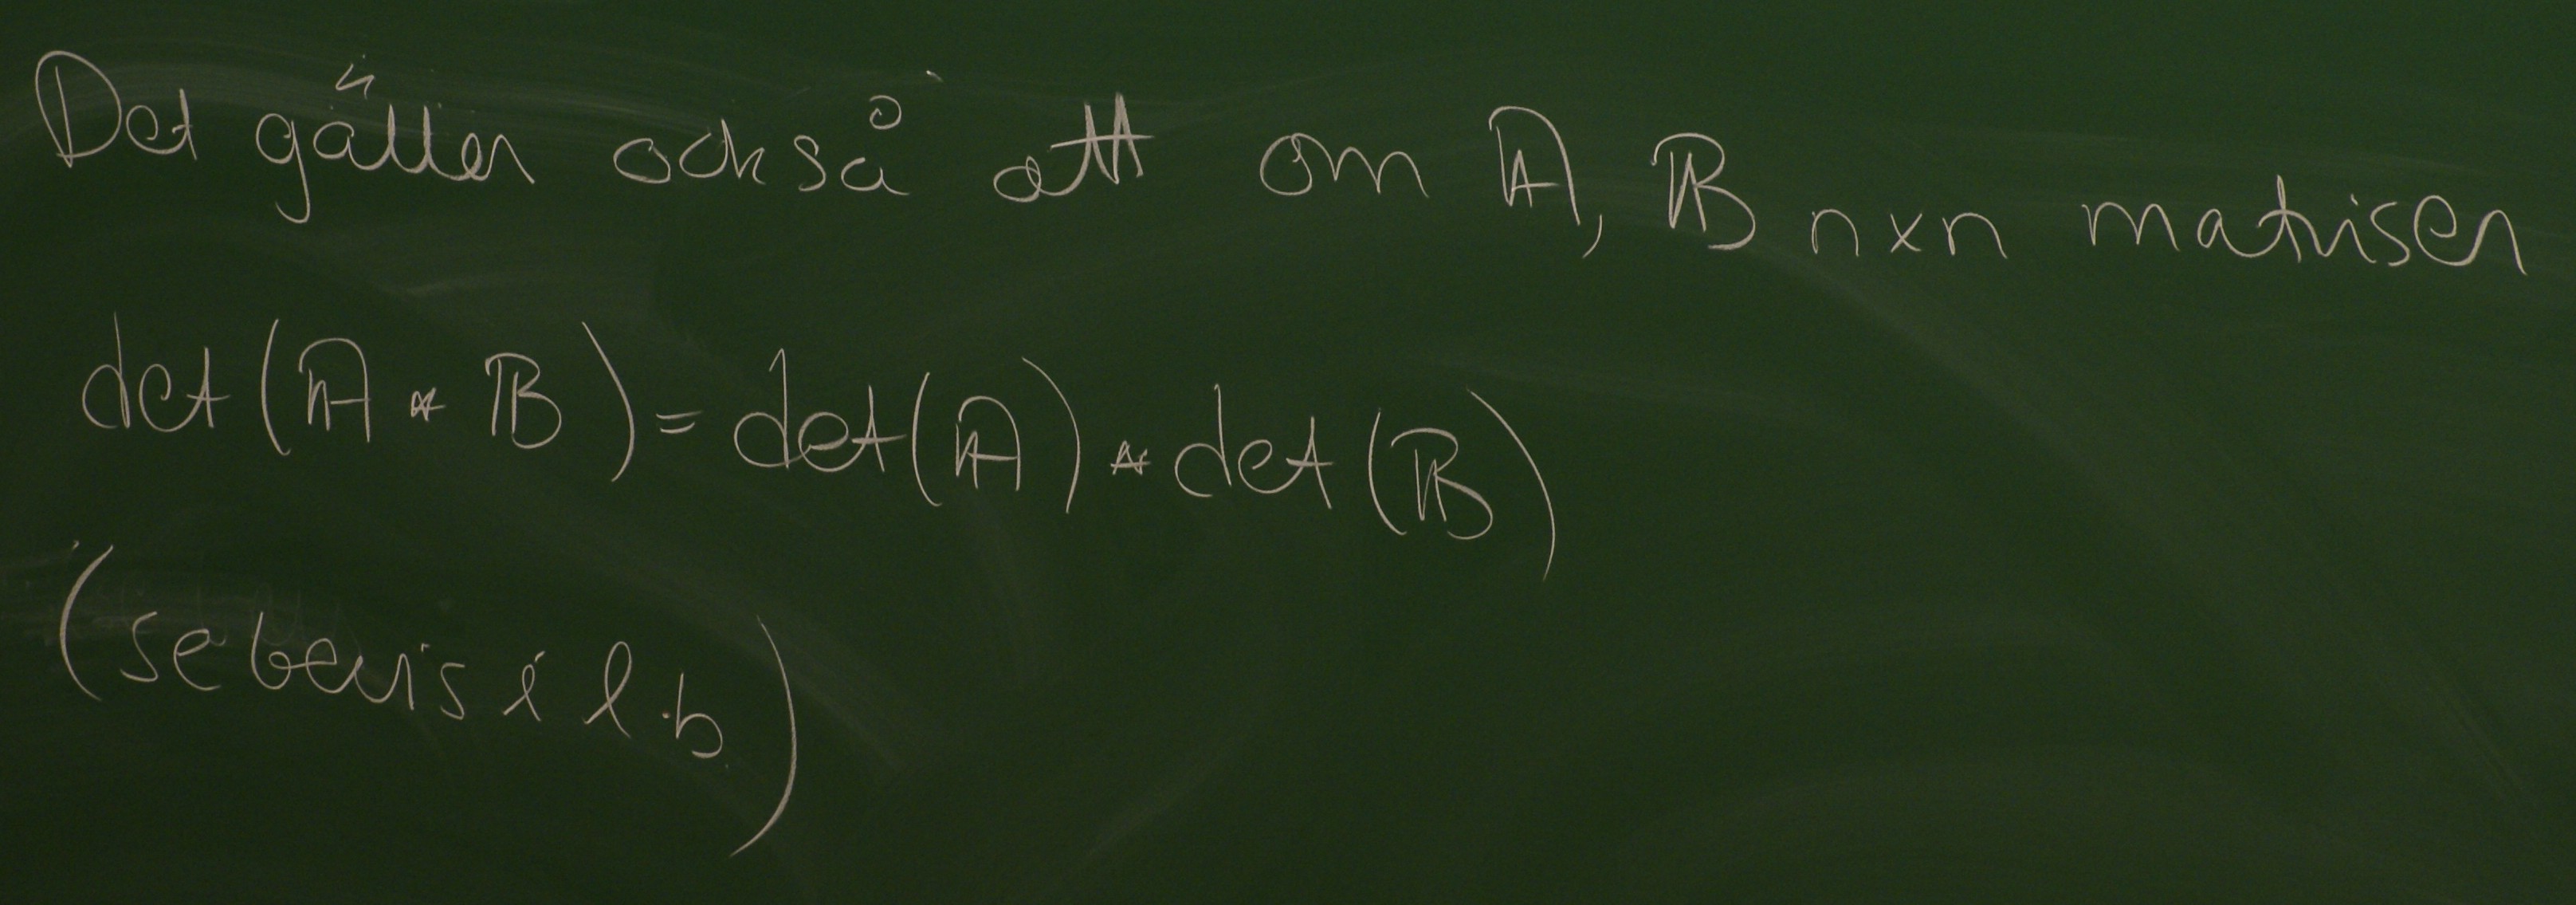 Det gäller också att om A, B n×n matriser
det(A * B) = det(A) * det(B)
(se bevis i l.b.)